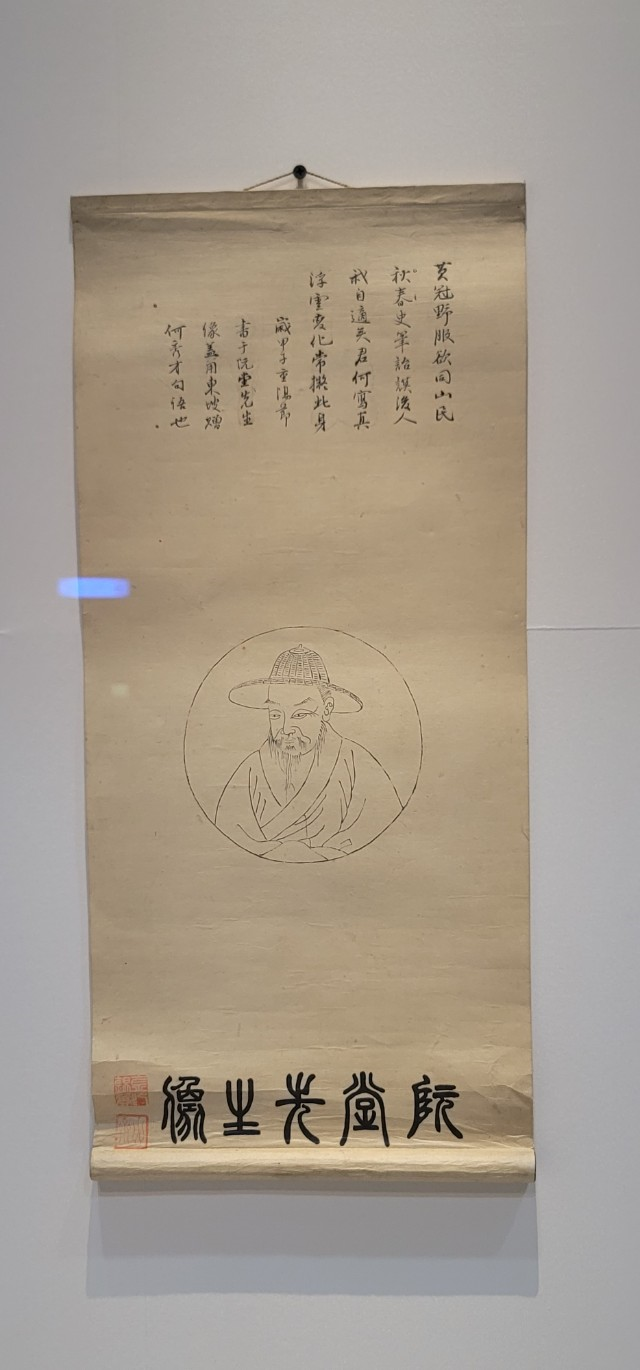 黃冠野服欲同山民
秋春史筆詒誤後人
我自適矣君何寫真
浮雲變化常擬此身
歲甲子重陽節
書于阮堂先生
像盖用東坡贈
何秀才句語也
阮堂先生像